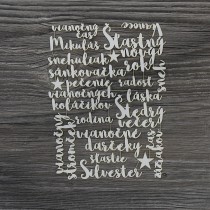 vianočný
čas
Vianoce
Mikuláš
Šťastný
nový
rok
snehuliak
sánkovačka
sneh
pečenie
radosť
vianočných
láska
koláčikov
Štedrý
večer
rodina
vianočné
darčeky
šťastie
Silvester
vianočný
stromček
čas
zázrakov